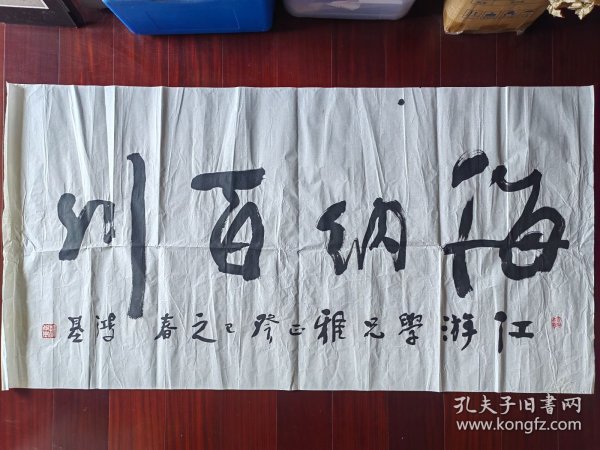 海纳百川
江游學兄雅正癸巳之春鸿基
孔夫子旧书网
www.kongfz.com